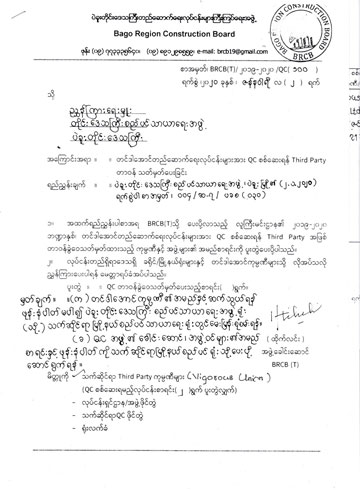 ပဲခူးတိုင်းဒေသကြီးတည်ဆောက်ရေးလုပ်ငန်းများကြီးကြပ်ရေးအဖွဲ့
Bago Region Construction Board
e-mail: brcb19@gmail.com
BAGO REGION CONSTRUCTION BOARD
BRCB
စာအမှတ်၊ BRCB(T)/ ၂၀၁၉-၂၀၂၀ /QC( ၁၀၀ )
ရက်စွဲ၊ ၂၀၂၀ ခုနှစ်၊ ဇန်နဝါရီ လ ( ၂ ) ရက်
သို့
ညွှန်ကြားရေးမှူး
တိုင်းဒေသကြီးစည်ပင်သာယာရေးအဖွဲ့
ပဲခူးတိုင်းဒေသကြီး
အကြောင်းအရာ ။ တင်ဒါအောင်တည်ဆောက်ရေးလုပ်ငန်းများအား QC စစ်ဆေးရန် Third Party
တာဝန် သတ်မှတ်ပေးခြင်း
ရည်ညွှန်းချက် ။ ပဲခူးတိုင်းဒေသကြီးစည်ပင်သာယာရေးအဖွဲ့၊ ပဲခူးမြို့၏
ရက်စွဲပါစာအမှတ်၊
၁။ အထက်ရည်ညွှန်းပါစာအရ BRCB(T)သို့ ပေးပို့လာသည့် လူကြီးမင်းဌာန၏ ၂၀၁၉-၂၀၂၀
ဘဏ္ဍာနှစ် တင်ဒါအောင်တည်ဆောက်ရေးလုပ်ငန်းများအား QC စစ်ဆေးရန် Third Party အဖြစ်
တာဝန်ခွဲဝေသတ်မှတ်ထားသည့် ကုမ္ပဏီနှင့် အဖွဲ့များ၏ အမည်စာရင်းကို ပူးတွဲပေးပို့ပါသည်။
၂။ လုပ်ငန်းတည်ရှိရာဒေသရှိ ခရိုင်/မြို့နယ်ရုံးများနှင့် တင်ဒါအောင်ကုမ္ပဏီများသို့ လိုအပ်သလို
ညွှန်ကြားပေးပါရန် မေတ္တာရပ်ခံအပ်ပါသည်။
ပူးတွဲ ။ QC တာဝန်ခွဲဝေသတ်မှတ်ပေးသည့်စာရင်း( )ရွက်။
မှတ်ချက် ။ (က) တင်ဒါအောင်ကုမ္ပဏီ၏အမည်နှင့်ဆက်သွယ်ရန်
ဖုန်းနံပါတ်မပါ၍ ပဲခူးတိုင်းဒေသကြီးစည်ပင်သာယာရေးအဖွဲ့ရုံး
(သို့) သက်ဆိုင်ရာမြို့နယ်စည်ပင်သာယာရေးရုံးတွင်မေးမြန်းရန်။
(ခ) QC အဖွဲ့၏ခေါင်းဆောင်၊ အဖွဲ့ဝင်များ၏အမည် ( ထိုက်လင်း )
စာရင်းနှင့်ဖုန်းနံပါတ်ကိုသက်ဆိုင်ရာမြို့နယ်စည်ပင်ရုံးသို့ပေးပို့ အဖွဲ့ခေါင်းဆောင်
ဆောင်ရွက်ရန်။ BRCB (T)
မိတ္တူကို သက်ဆိုင်ရာ Third Party ကုမ္ပဏီများ (Vigorous Union)
(QC စစ်ဆေးရမည့်လုပ်ငန်းစာရင်း( ၂ )ရွက် ပူးတွဲလျှက်)
- လုပ်ငန်းရှင်ဌာန/အဖွဲ့ဖိုင်တွဲ
- သက်ဆိုင်ရာQC ဖိုင်တွဲ
- ရုံးလက်ခံ